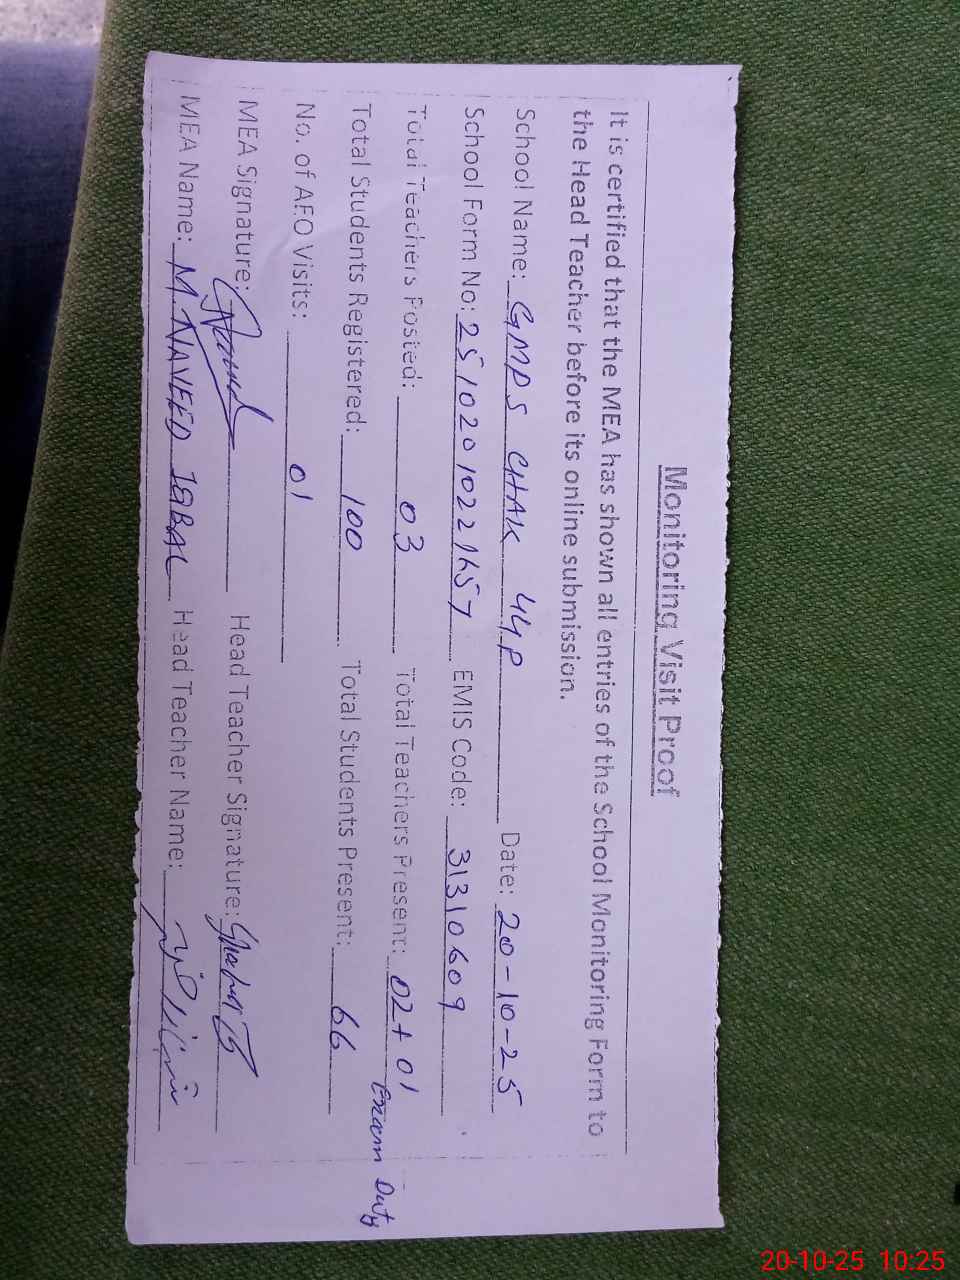 Monitoring Visit Proof
It is certified that the MEA has shown all entries of the School Monitoring Form to
the Head Teacher before its online submission.
School Name: GMPS CHAK 44P Date: 20-10-25
School Form No: 25102010221657 EMIS Code: 31310609
Total Teachers Posted: 03 Total Teachers Present: 02+01 Exam Duty
Total Students Registered: 100 Total Students Present: 66
No. of AEO Visits: 01
MEA Signature: Head Teacher Signature:
MEA Name: M. NAVEED IQBAL Head Teacher Name:
20-10-25 10:25